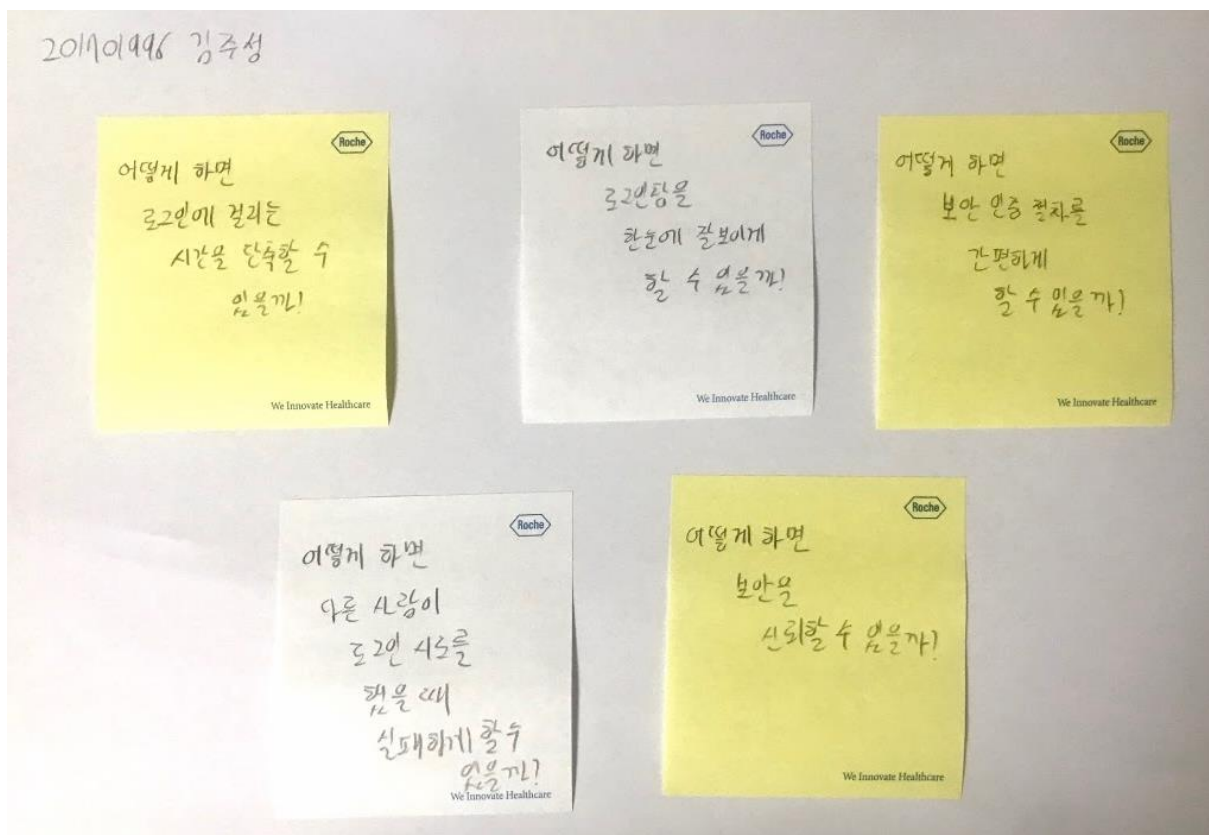 201701996 김주성
Roche
어떻게 하면
로그인에 걸리는
시간을 단축할 수
있을까?
We Innovate Healthcare
Roche
어떻게 하면
로그인탭을
한눈에 잘보이게
할 수 있을까?
We Innovate Healthcare
Roche
어떻게 하면
보안 인증 절차를
간편하게
할 수 있을까?
We Innovate Healthcare
Roche
어떻게 하면
다른 사람이
로그인 시도를
했을 때
실패하게 할 수
있을까?
We Innovate Healthcare
Roche
어떻게 하면
보안을
신뢰할 수 있을까?
We Innovate Healthcare